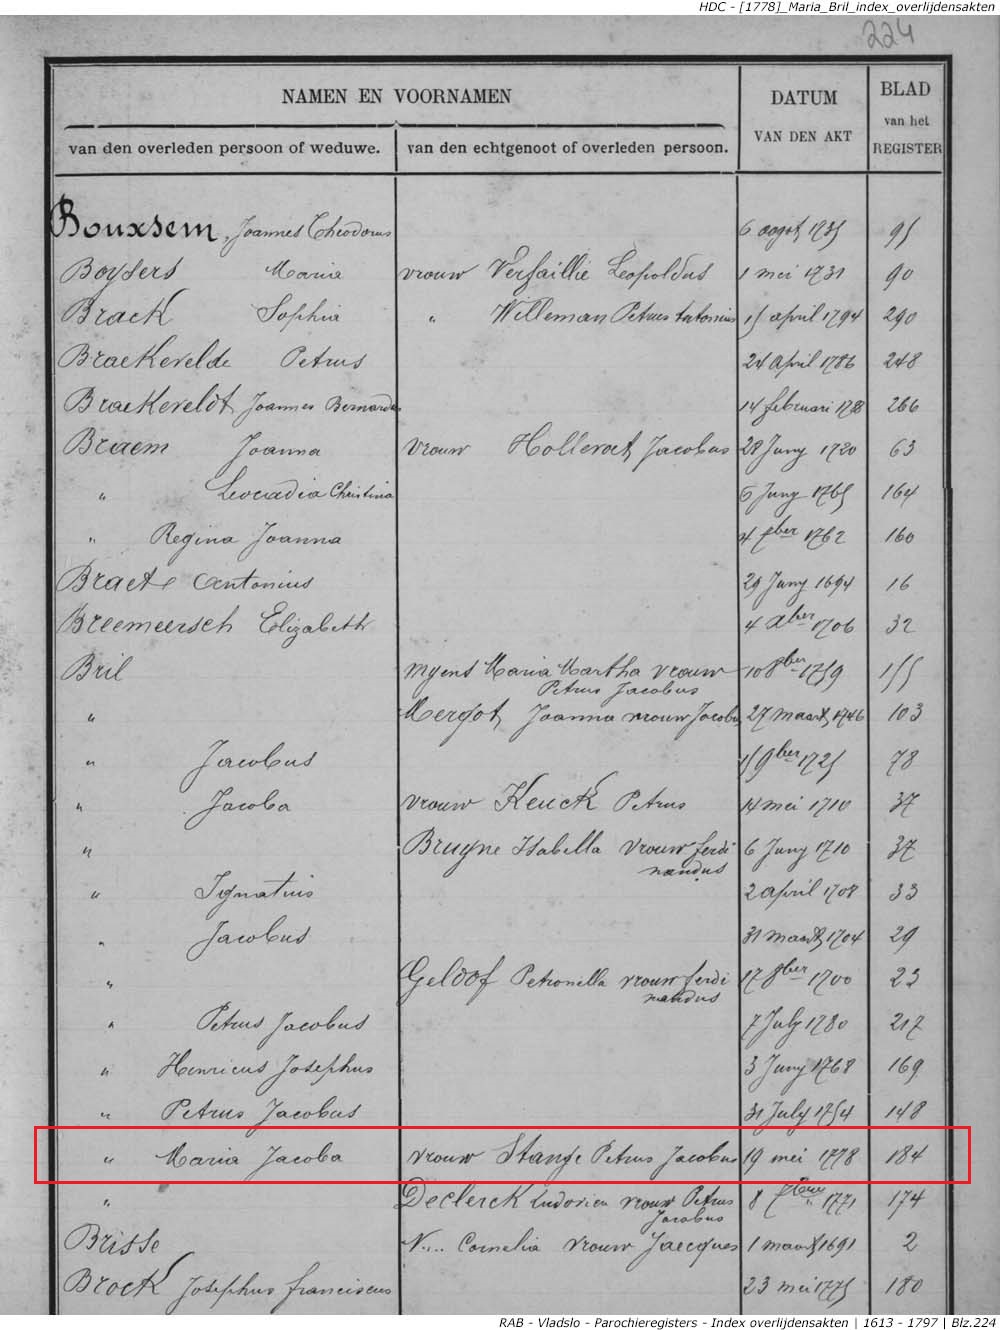 HDC - [1778]_Maria_Bril_index_overlijdensakten
224
NAMEN EN VOORNAMEN DATUM VAN DEN AKT BLAD van het REGISTER
van den overleden persoon of weduwe. van den echtgenoot of overleden persoon.
Bouxsem, Joannes Theodorus 6 oogst 1735 95
Boysers Maria vrouw Versaillie Leopoldus 1 mei 1731 90
Brack Sophia " Willeman Petrus Antonius 15 april 1794 290
Braekevelde Petrus 24 April 1786 248
Braekeveldt Joannes Bernardus 14 februari 1788 266
Braem Joanna vrouw Hollevoet Jacobus 28 Juny 1720 63
" Leocadia Christina 6 Juny 1765 164
" Regina Joanna 4 7ber 1762 160
Braet Antonius 29 Juny 1694 16
Breemeersch Elizabeth 4 Xber 1706 32
Bril Maria Martha vrouw 10 8ber 1759 155
Petrus Jacobus
" Mergot Joanna vrouw Jacobus 27 maart 1746 103
" Jacobus 15 9ber 1725 78
" Jacoba vrouw Keuck Petrus 14 mei 1710 37
" Bruyne Isabella vrouw ferdi 6 Juny 1710 37
nandus
" Ignatius 2 april 1708 33
" Jacobus 31 maart 1704 29
" Geldof Petronella vrouw ferdi 17 8ber 1700 23
nandus
" Petrus Jacobus 7 July 1780 217
" Henricus Josephus 3 Juny 1768 169
" Petrus Jacobus 31 July 1754 148
" Maria Jacoba vrouw Stange Petrus Jacobus 19 mei 1778 184
" Declerck Ludovica vrouw Petrus 8 1771 174
Jacobus
Brisse N.... Cornelia vrouw Jaecques 1 maart 1691 2
Brock Josephus franciscus 23 mei 1775 180
RAB - Vladslo - Parochieregisters - Index overlijdensakten | 1613 - 1797 | Blz.224